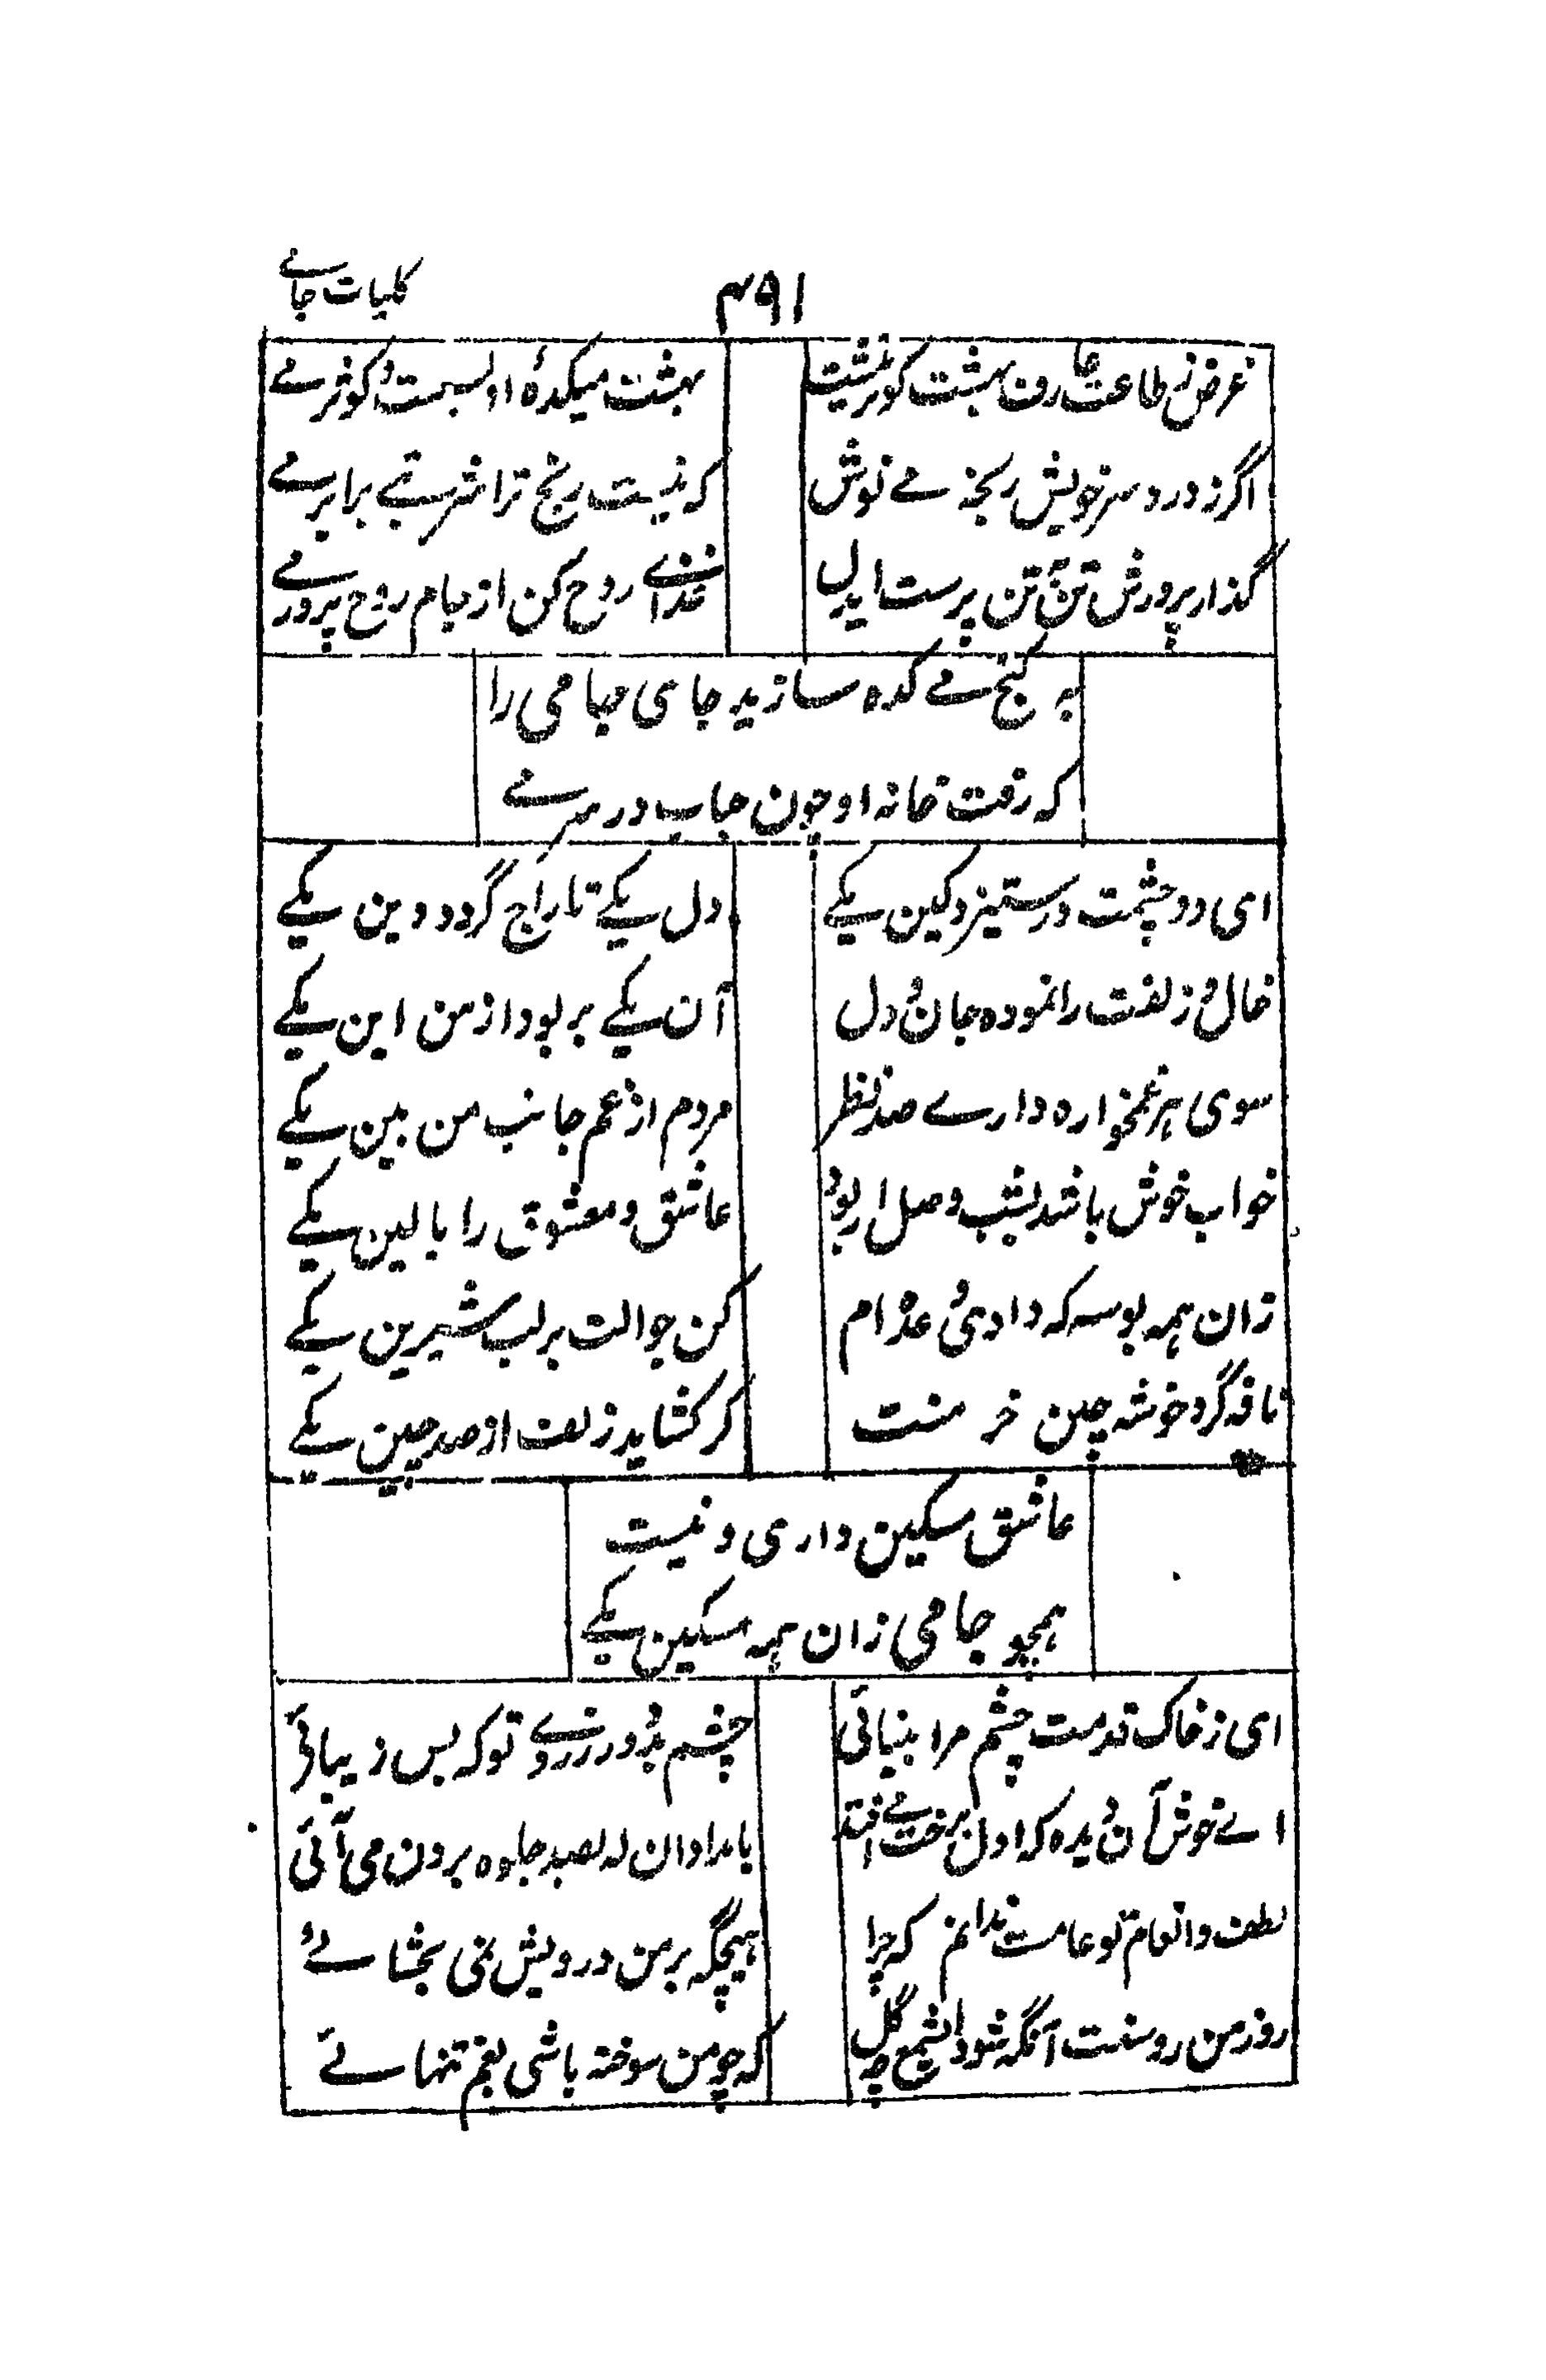 ۴۹۱
کلیات جامے
غرض ز طاعت عارف بہشت کوثر نیست
بہشت میکدۂ اوست و کوثر مے
اگر ز درد سر خویش رنجہ مے نوش
کہ نیست رنج ترا شربتے برابر مے
گذار پرورش تن نۂ تن پرست ایدل
غذاے روح کن از جام روح پرور مے
بہ کنج مے کدہ سازید جای جامی را
کہ رفت خانہ او چون حباب در سر مے
ای دو چشمت در ستیز و کین یکے
دل یکے تاراج کردہ دین یکے
خال و زلفت را نمودہ جان و دل
آن یکے بربود از من این یکے
سوی ہر غمخوارہ دارے صد نظر
مردم از غم جانب من بین یکے
خواب خوش باشد بشب وصل ار بود
عاشق و معشوق را بالین یکے
زان ہمہ بوسہ کہ دادی وعدہ ام
کن حوالت بر لب شیرین یکے
نافہ گردد خوشہ چین خرمنت
گر کشاید زلفت از صد چین یکے
عاشق مسکین داری و نیست
ہمچو جامی زان ہمہ مسکین یکے
ای ز خاک قدمت چشم مرا بینائی
چشم بد دور ز روے تو کہ بس زیبائی
اے خوش آن دیدہ کہ اول برخت مے افتد
بامدادان کہ بصد جلوہ برون می آئی
لطف و انعام تو عامست ندانم کہ چرا
ہیچگہ بر من درویش نمی بخشائے
روز من روشنت آنگہ شود ای شمع چگل
کہ چو من سوختہ باشی بغم تنہائے